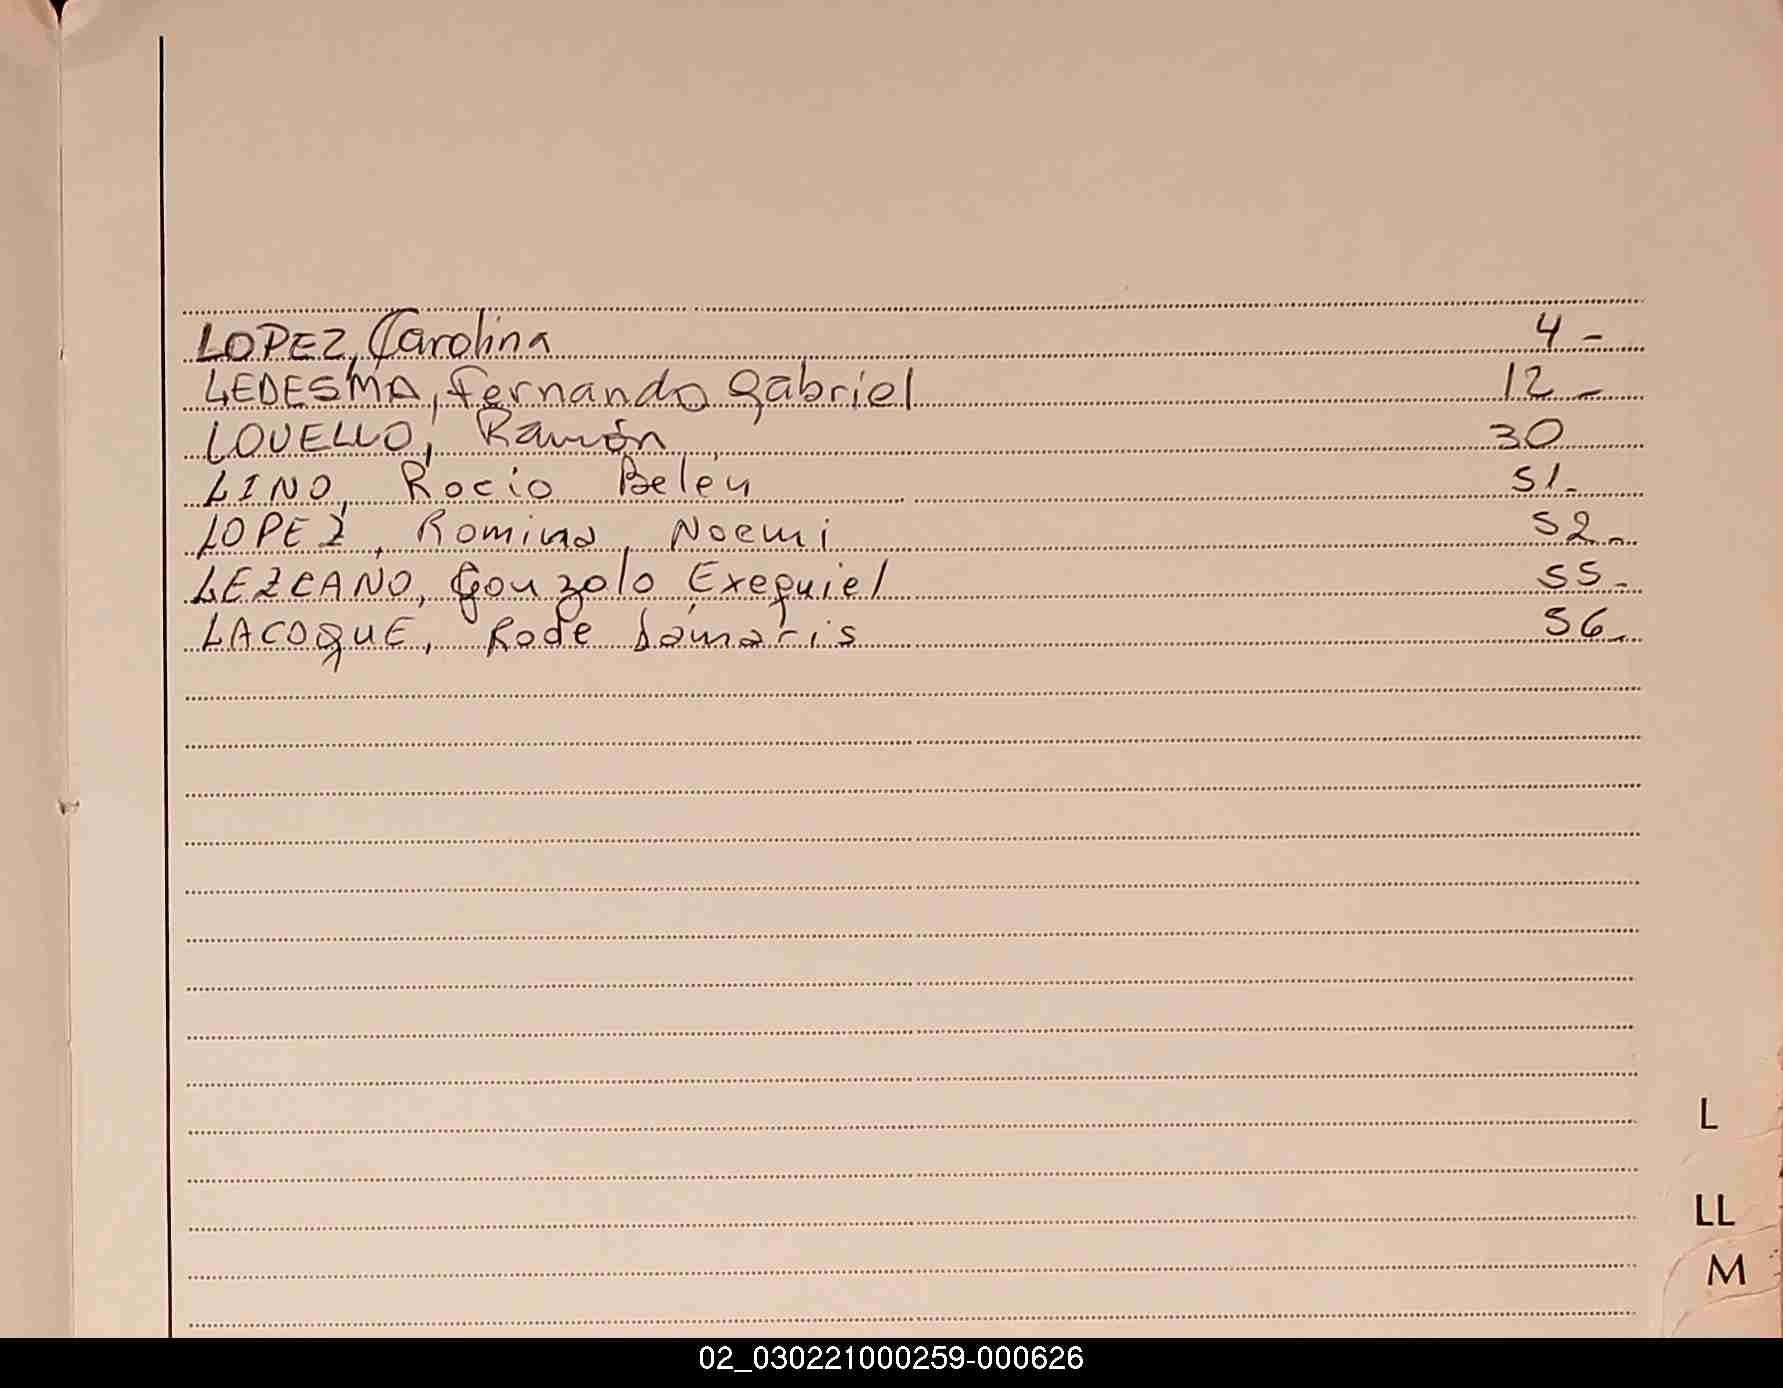 LOPEZ, Carolina 4 -
LEDESMA, Fernando Gabriel 12 -
LOVELLO, Ramón 30
LINO, Rocio Belén 51.
LOPEZ, Romina, Noemi 52 -
LEZCANO, Gonzalo Exequiel 55 -
LACOQUE, Rode Damaris 56.
L
LL
M
02_030221000259-000626